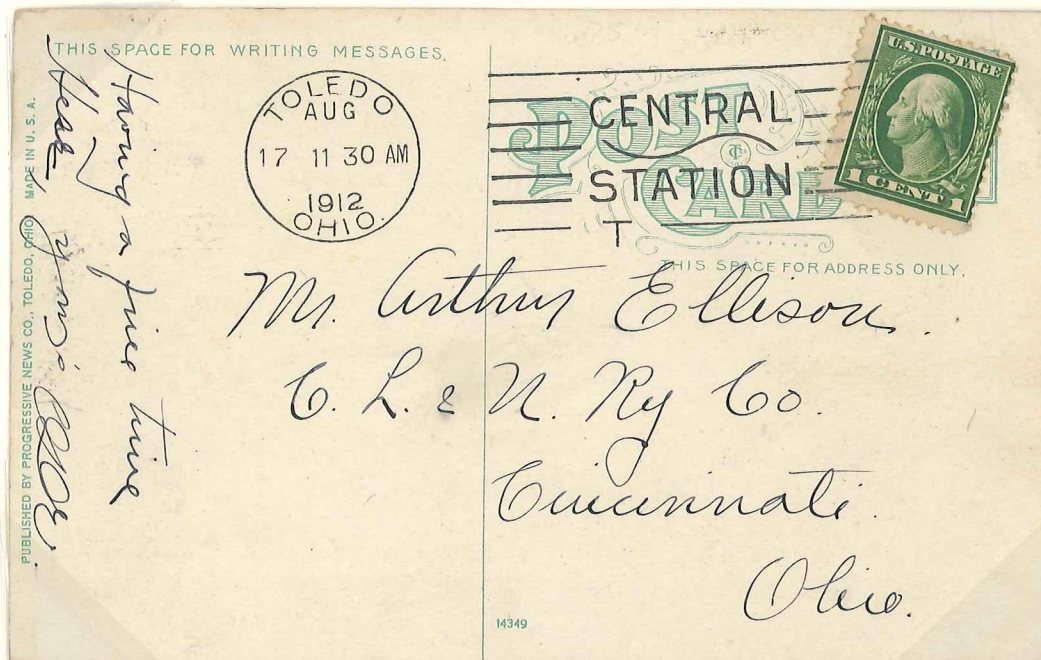 THIS SPACE FOR WRITING MESSAGES.
PUBLISHED BY PROGRESSIVE NEWS CO., TOLEDO, OHIO. MADE IN U. S. A.
Having a fine time
Here, yours
TOLEDO
AUG
17 11 30 AM
1912
OHIO.
CENTRAL
STATION
T
POST
CARD
U.S. POSTAGE
1 CENT 1
THIS SPACE FOR ADDRESS ONLY.
Mr. Arthur Ellison.
C. L. & N. Ry Co.
Cincinnati.
Ohio.
14349